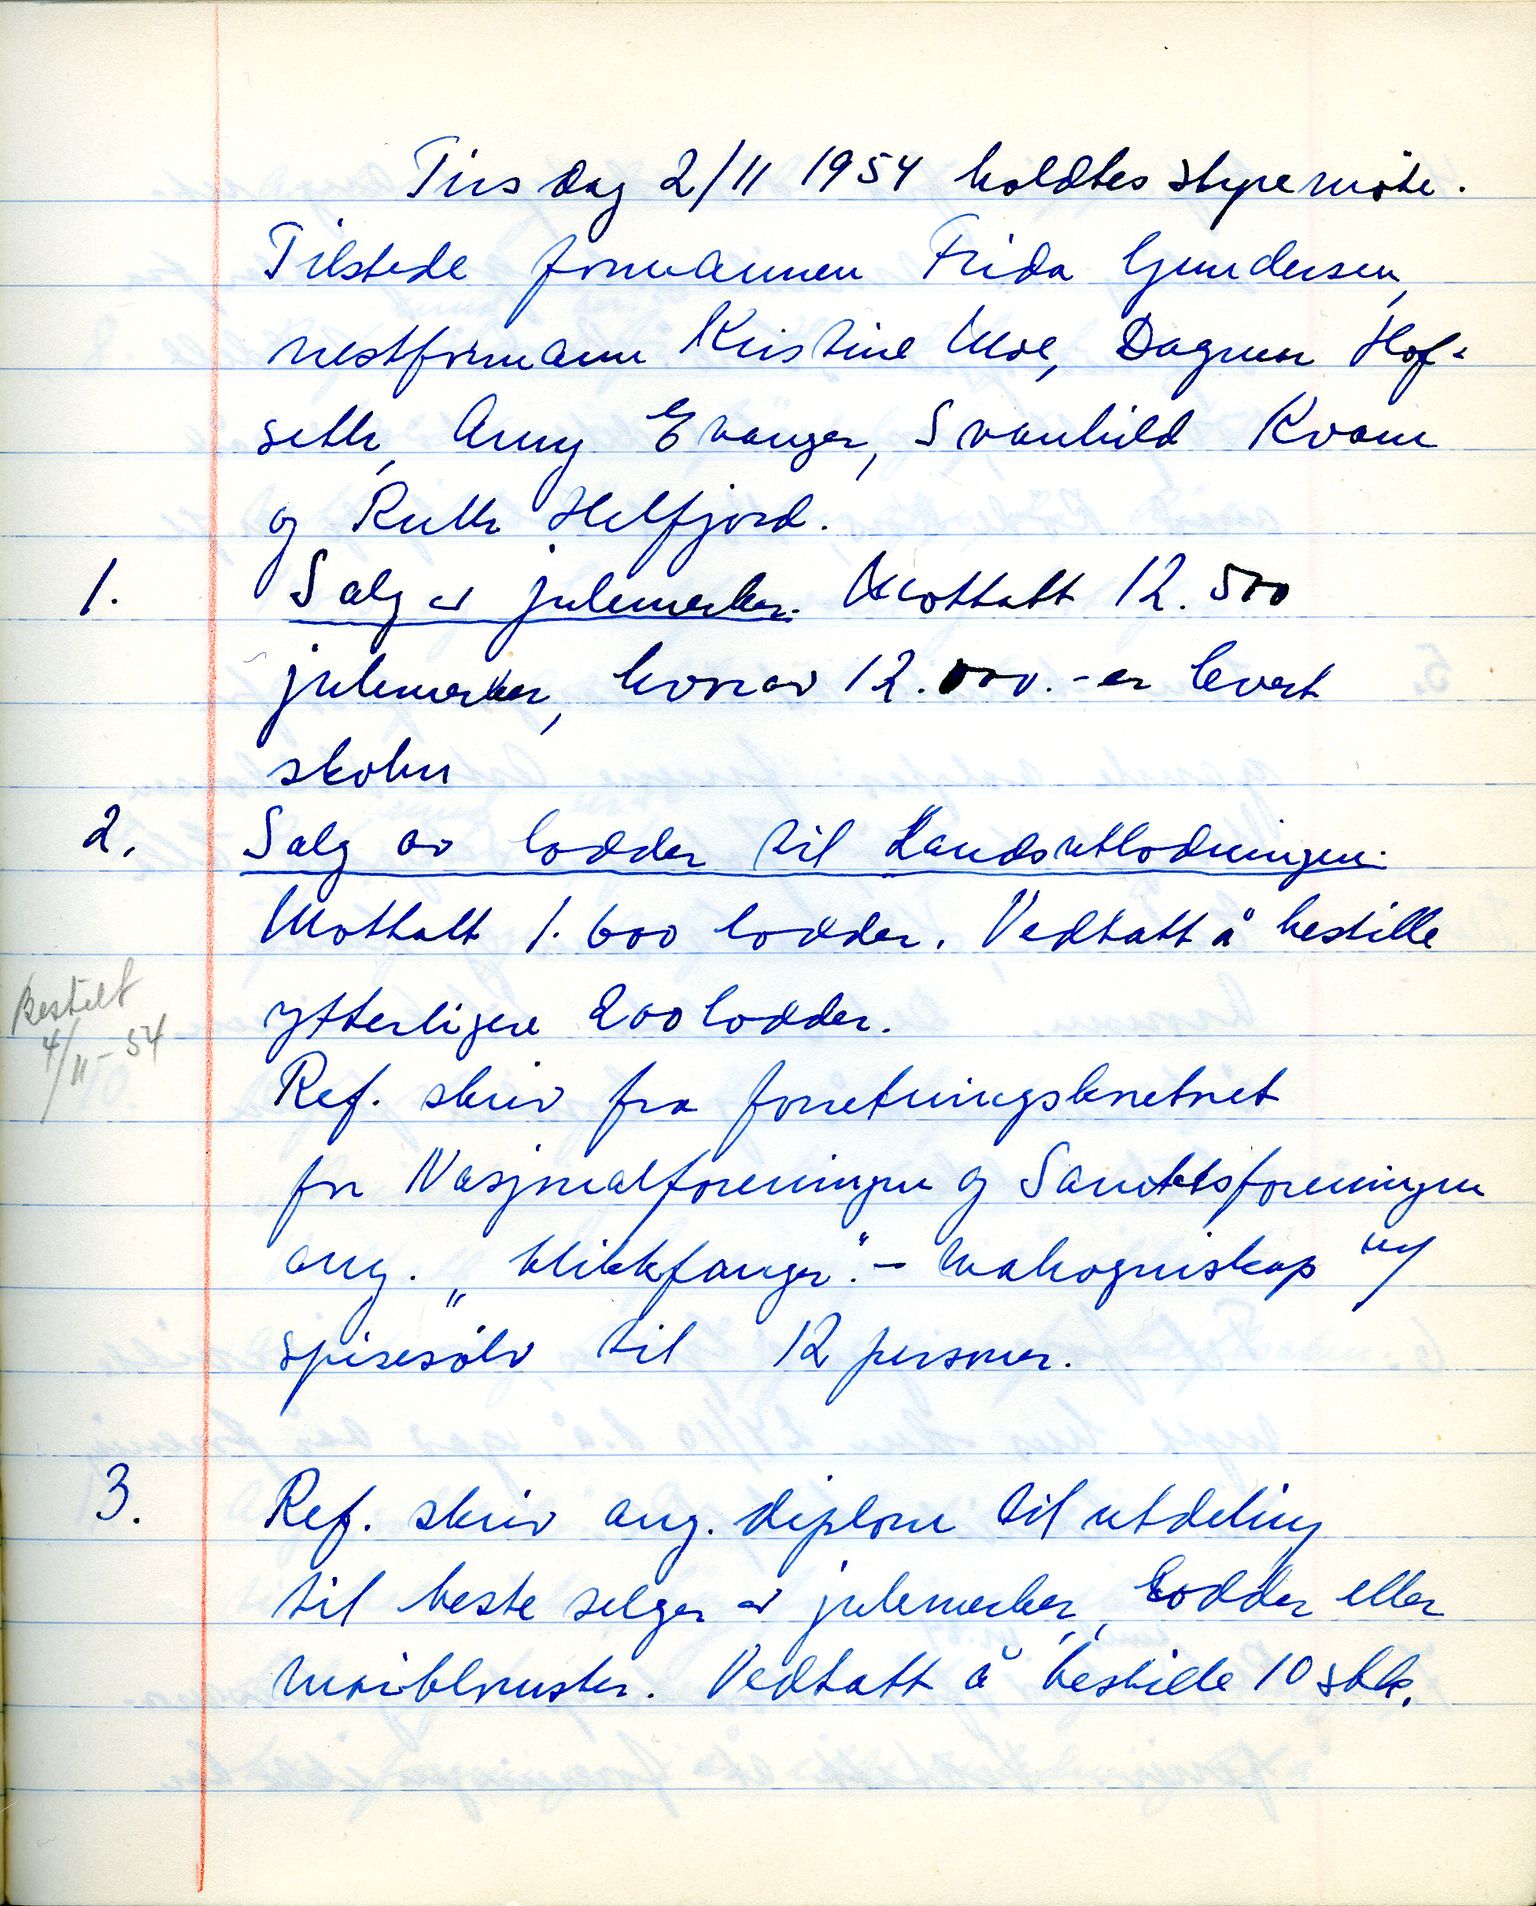 Tirsdag 2/11 1954 holdtes styremöte.
Tilstede formannen Frida Gundersen,
nestformann Kristine Moe, Dagmar Hof-
seth, Anny Evanger, Svanhild Kvam
og Ruth Helfjord.
1. Salg av julemerker. Mottatt 12.500
julemerker, hvorav 12.000.- er levert
skolen
2. Salg av lodder til Landsutlodningen.
Mottatt 1.600 lodder. Vedtatt å bestille
ytterligere 200 lodder.
Bestilt
4/11-54
Ref. skriv fra forretningskontoret
for Nasjonalforeningen og Sanitetsforeningen
ang. „blikkfanger". - mahogniskap m/
spisesölv til 12 personer.
3. Ref. skriv ang. diplom til utdeling
til beste selger av julemerker, lodder eller
maiblomster. Vedtatt å bestille 10 stk.